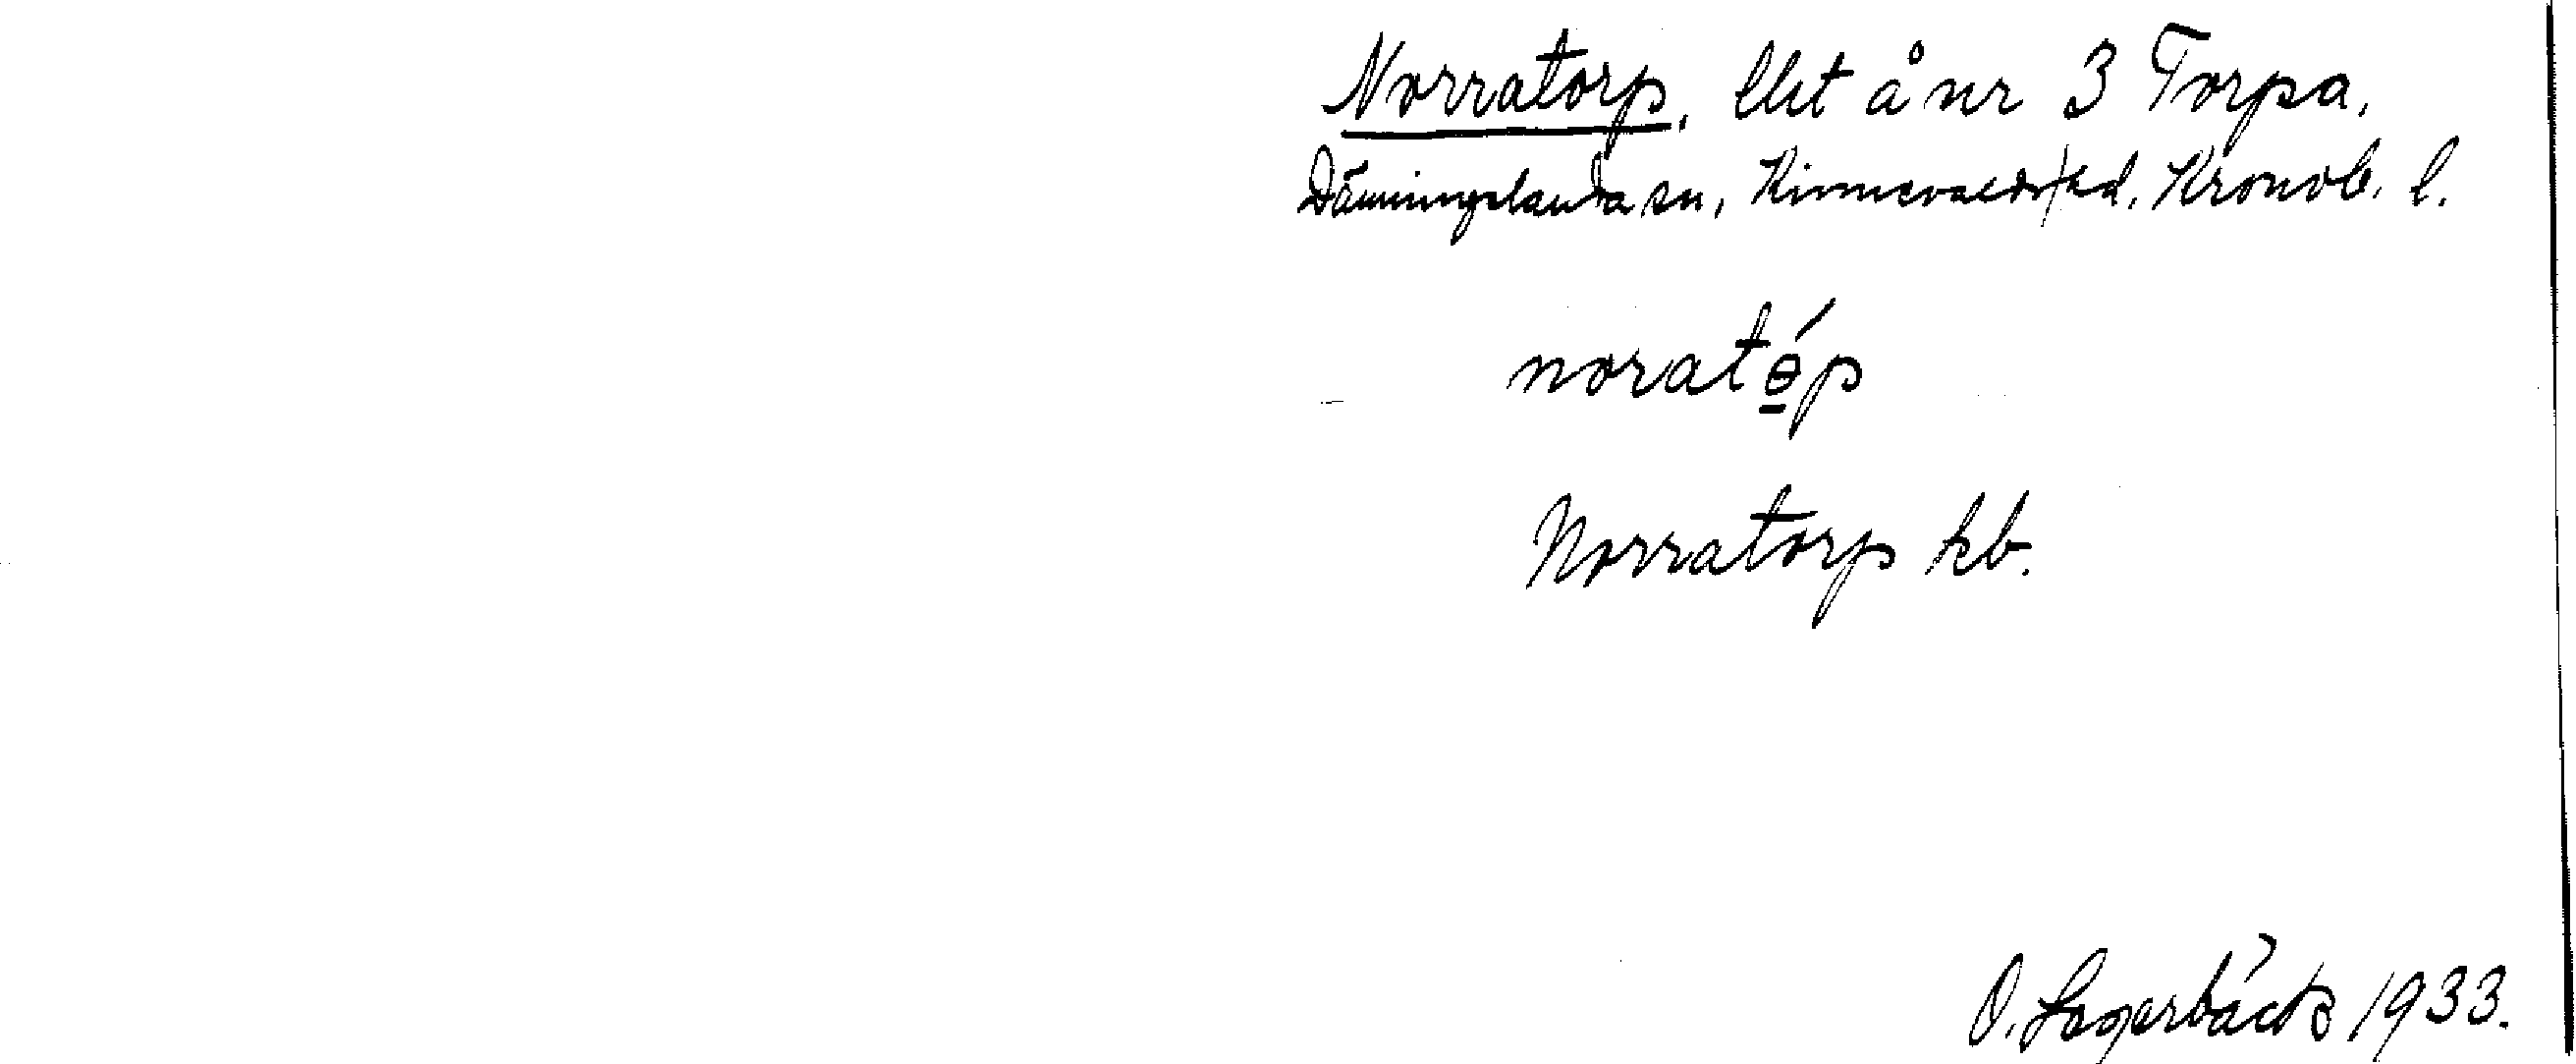 Norratorp, llet å nr 3 Torpa,
Dänningelanda sn, Kinnevalds hd, Kronob. l.
noratɵ́p
Norratorp kb.
O. Lagerbäck 1933.